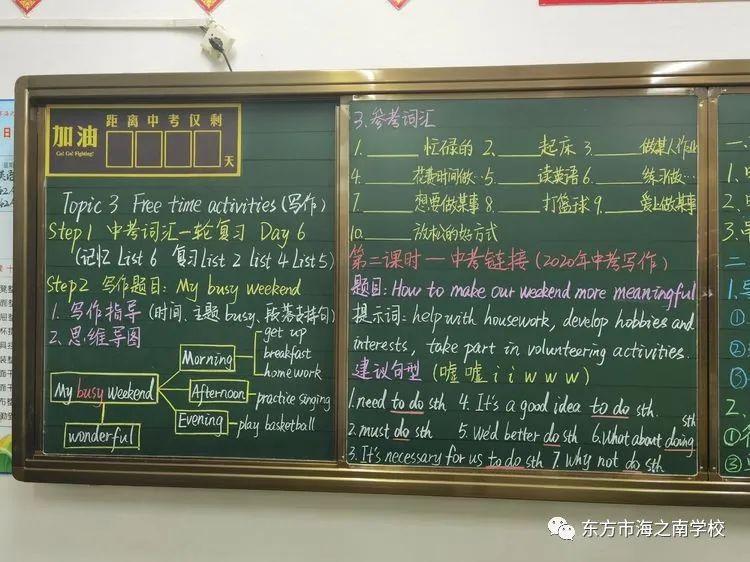 距离中考仅剩
加油
Go! Go! Fighting!
天
Topic 3 Free time activities (写作)
Step1 中考词汇一轮复习 Day 6
(记忆 List 6 复习 List 2 List 4 List 5)
Step2 写作题目: My busy weekend
1. 写作指导 (时间、主题 busy、段落支持句)
2. 思维导图
get up
Morning
breakfast
homework
My busy weekend
Afternoon
practice singing
Evening
play basketball
wonderful
3. 参考词汇
1. ______ 忙碌的 2. ______ 起床 3. ______ 做某人作业
4. ______ 花费时间做… 5. ______ 读英语 6. ______ 练习做…
7. ______ 想要做某事 8. ______ 打篮球 9. ______ 爱上做某事
10. ______ 放松的好方式
第二课时—中考链接 (2020年中考写作)
题目: How to make our weekend more meaningful
提示词: help with housework, develop hobbies and
interests, take part in volunteering activities.
建议句型 (嘘嘘 i i w w w)
1. need to do sth 4. It's a good idea to do sth.
2. must do sth 5. We'd better do sth 6. What about doing sth
3. It's necessary for us to do sth 7. Why not do sth
东方市海之南学校